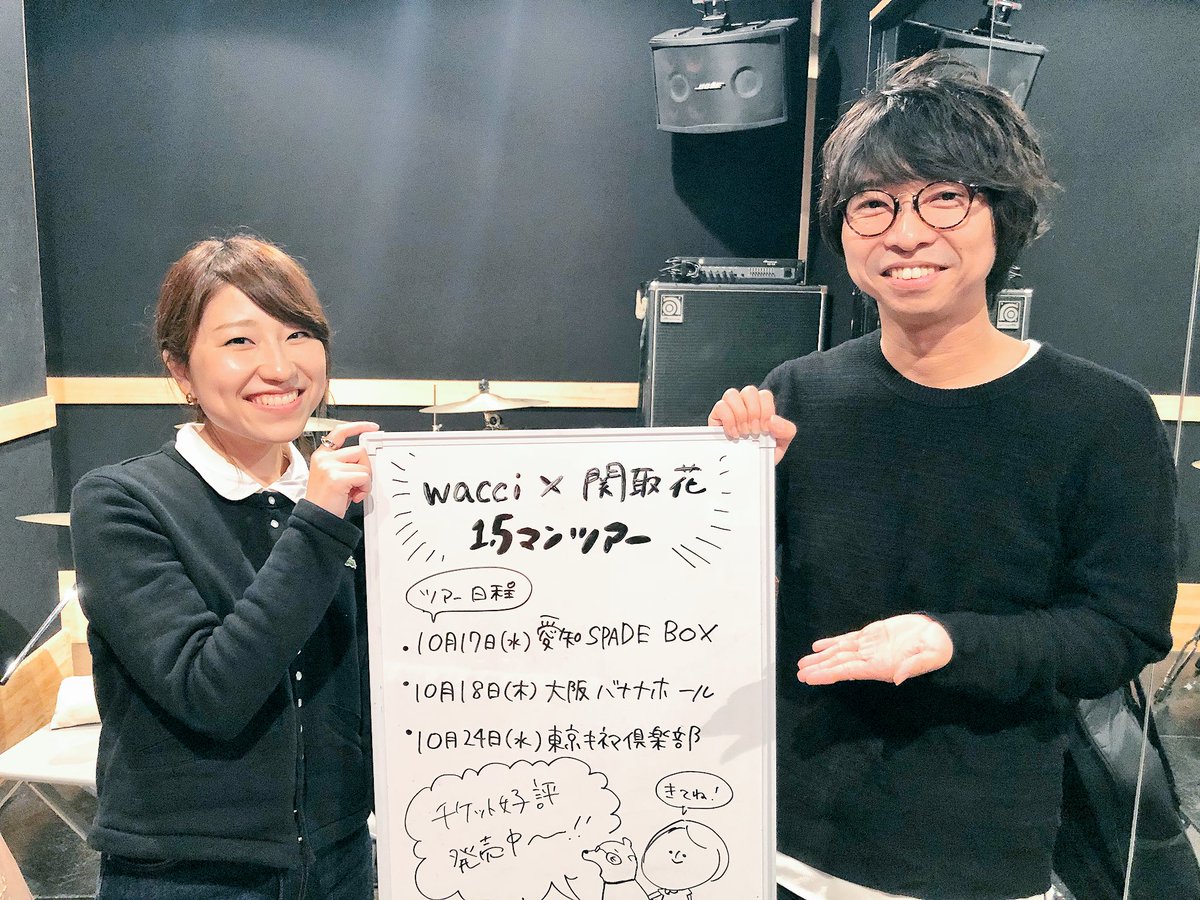 wacci × 関取花
1.5マンツアー
ツアー日程
・10月17日(水) 愛知 SPADE BOX
・10月18日(木) 大阪 バナナホール
・10月24日(水) 東京キネマ倶楽部
チケット好評
発売中〜!!
きてね!
BOSE